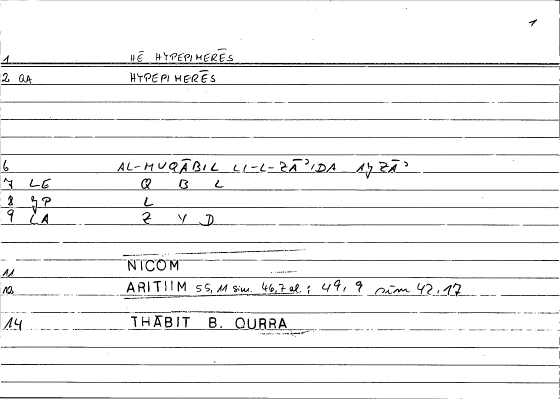 1
1 HĒ HYPEPIMERĒS
2 QA HYPEPIMERĒS
6 AL-MUQĀBIL LI-L-ZĀʾIDA AǦZĀʾ
7 LE Q B L
8 ǦP L
9 LA Z Y D
11 NICOM
12 ARITIIM 55, 11 sim. 46,7 al.; 49, 9 sim 42,17
14 THĀBIT B. QURRA